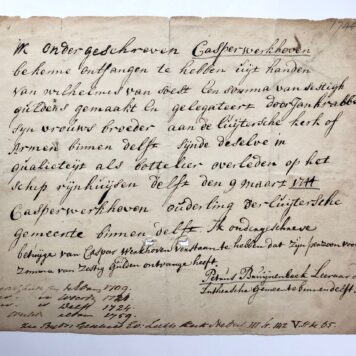 1744
ik ondergeschreven Casperwerkhoven
bekenne ontfangen te hebben uijt handen
van wilhelmes van soest een somma van sestigh
guldens gemaekt En gelegateert door Jan krabbe
syn vrouws broeder aan de luijtersche kerk of
Armen binnen delft sijnde deselve in
qualieteijt als bottelier overleden op het
schip rijnhuijsen delft den 9 maart 1744
Casperwerkhoven ouderling der luijtersche
gemeente binnen delft Ik ondergeschreve
betuijge van Caspar Werkhoven verstaan te hebben dat zijn persoon voorn
Somma van Zestig Gulden ontvange heeft.
Petrus Leeraar
Luthersche Gemeente binnen delft
1709.
1724
1759.